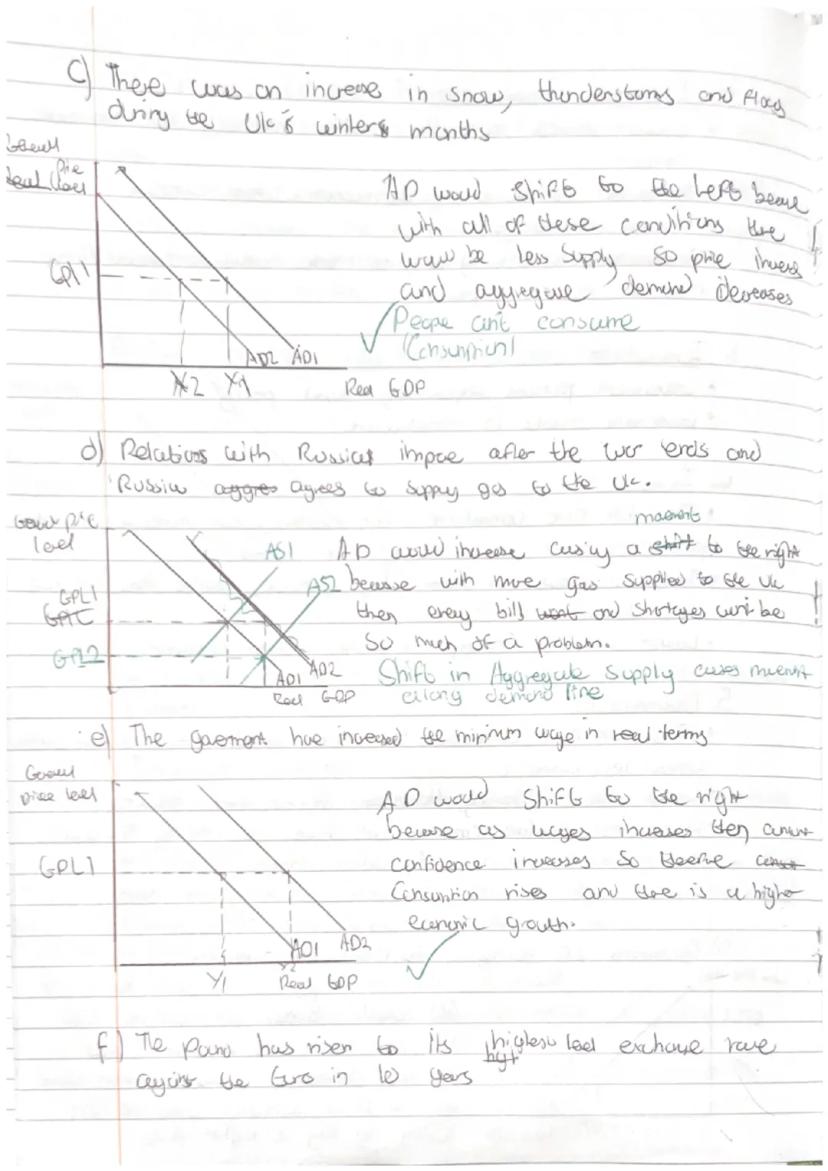 c) There was an increase in snow, thunderstorms and floods
during the UK's winters months
General
Price
level
GPL1
AD2 AD1
Y2 Y1 Real GDP
AD would shift to the left
with all of these conditions there
would be less supply so price
and aggregate demand decreases
People can't consume
(Consumption)
d) Relations with Russia after the war ends and
Russia agrees to supply gas to the UK.
level
GPL1
GPL2
AS1
AS2
AD1 AD2
Real GDP
movement
AD would increase causing a shift to the right
because with more gas supplied to the UK
then energy bills and shortages won't be
so much of a problem.
Shift in Aggregate supply causes movement
along demand line
e) The government have increased the minimum wage in real terms
General
price level
GPL1
AD1 AD2
Y1 Y2 Real GDP
AD would shift to the right
because as wages increases then
confidence increases so
Consumption rises and there is a higher
economic growth.
f) The Pound has risen to its highest level exchange rate
against the Euro in 10 years